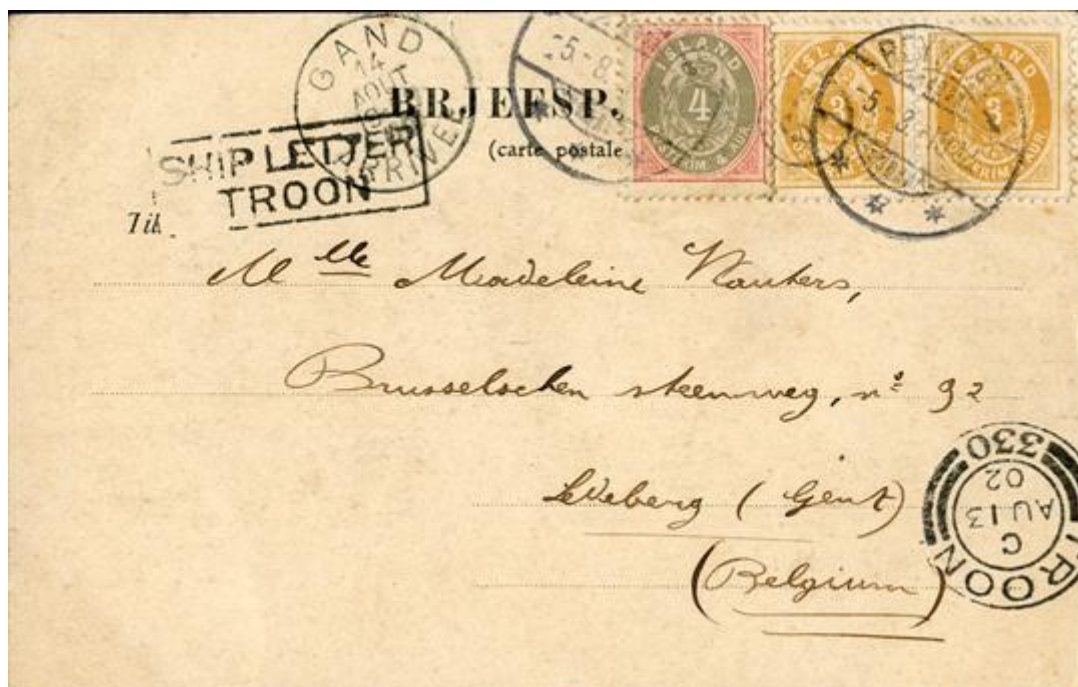 GAND
14
AOUT
ARRIVEE
BRJEFSP.
(carte postale
SHIP LETTER
TROON
Til
5.-8.
ISLAND
4
ISLAND
3
ISLAND
3
Mlle Madeleine Wauters,
Brusselschen steenweg, nº 92
Ledeberg (Gent)
(Belgium)
330
TROON
C
AU 13
02